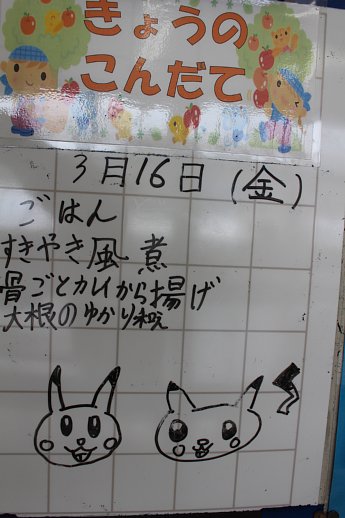 きょうの
こんだて
3月16日(金)
ごはん
すきやき風煮
骨ごとカレイから揚げ
大根のゆかり和え